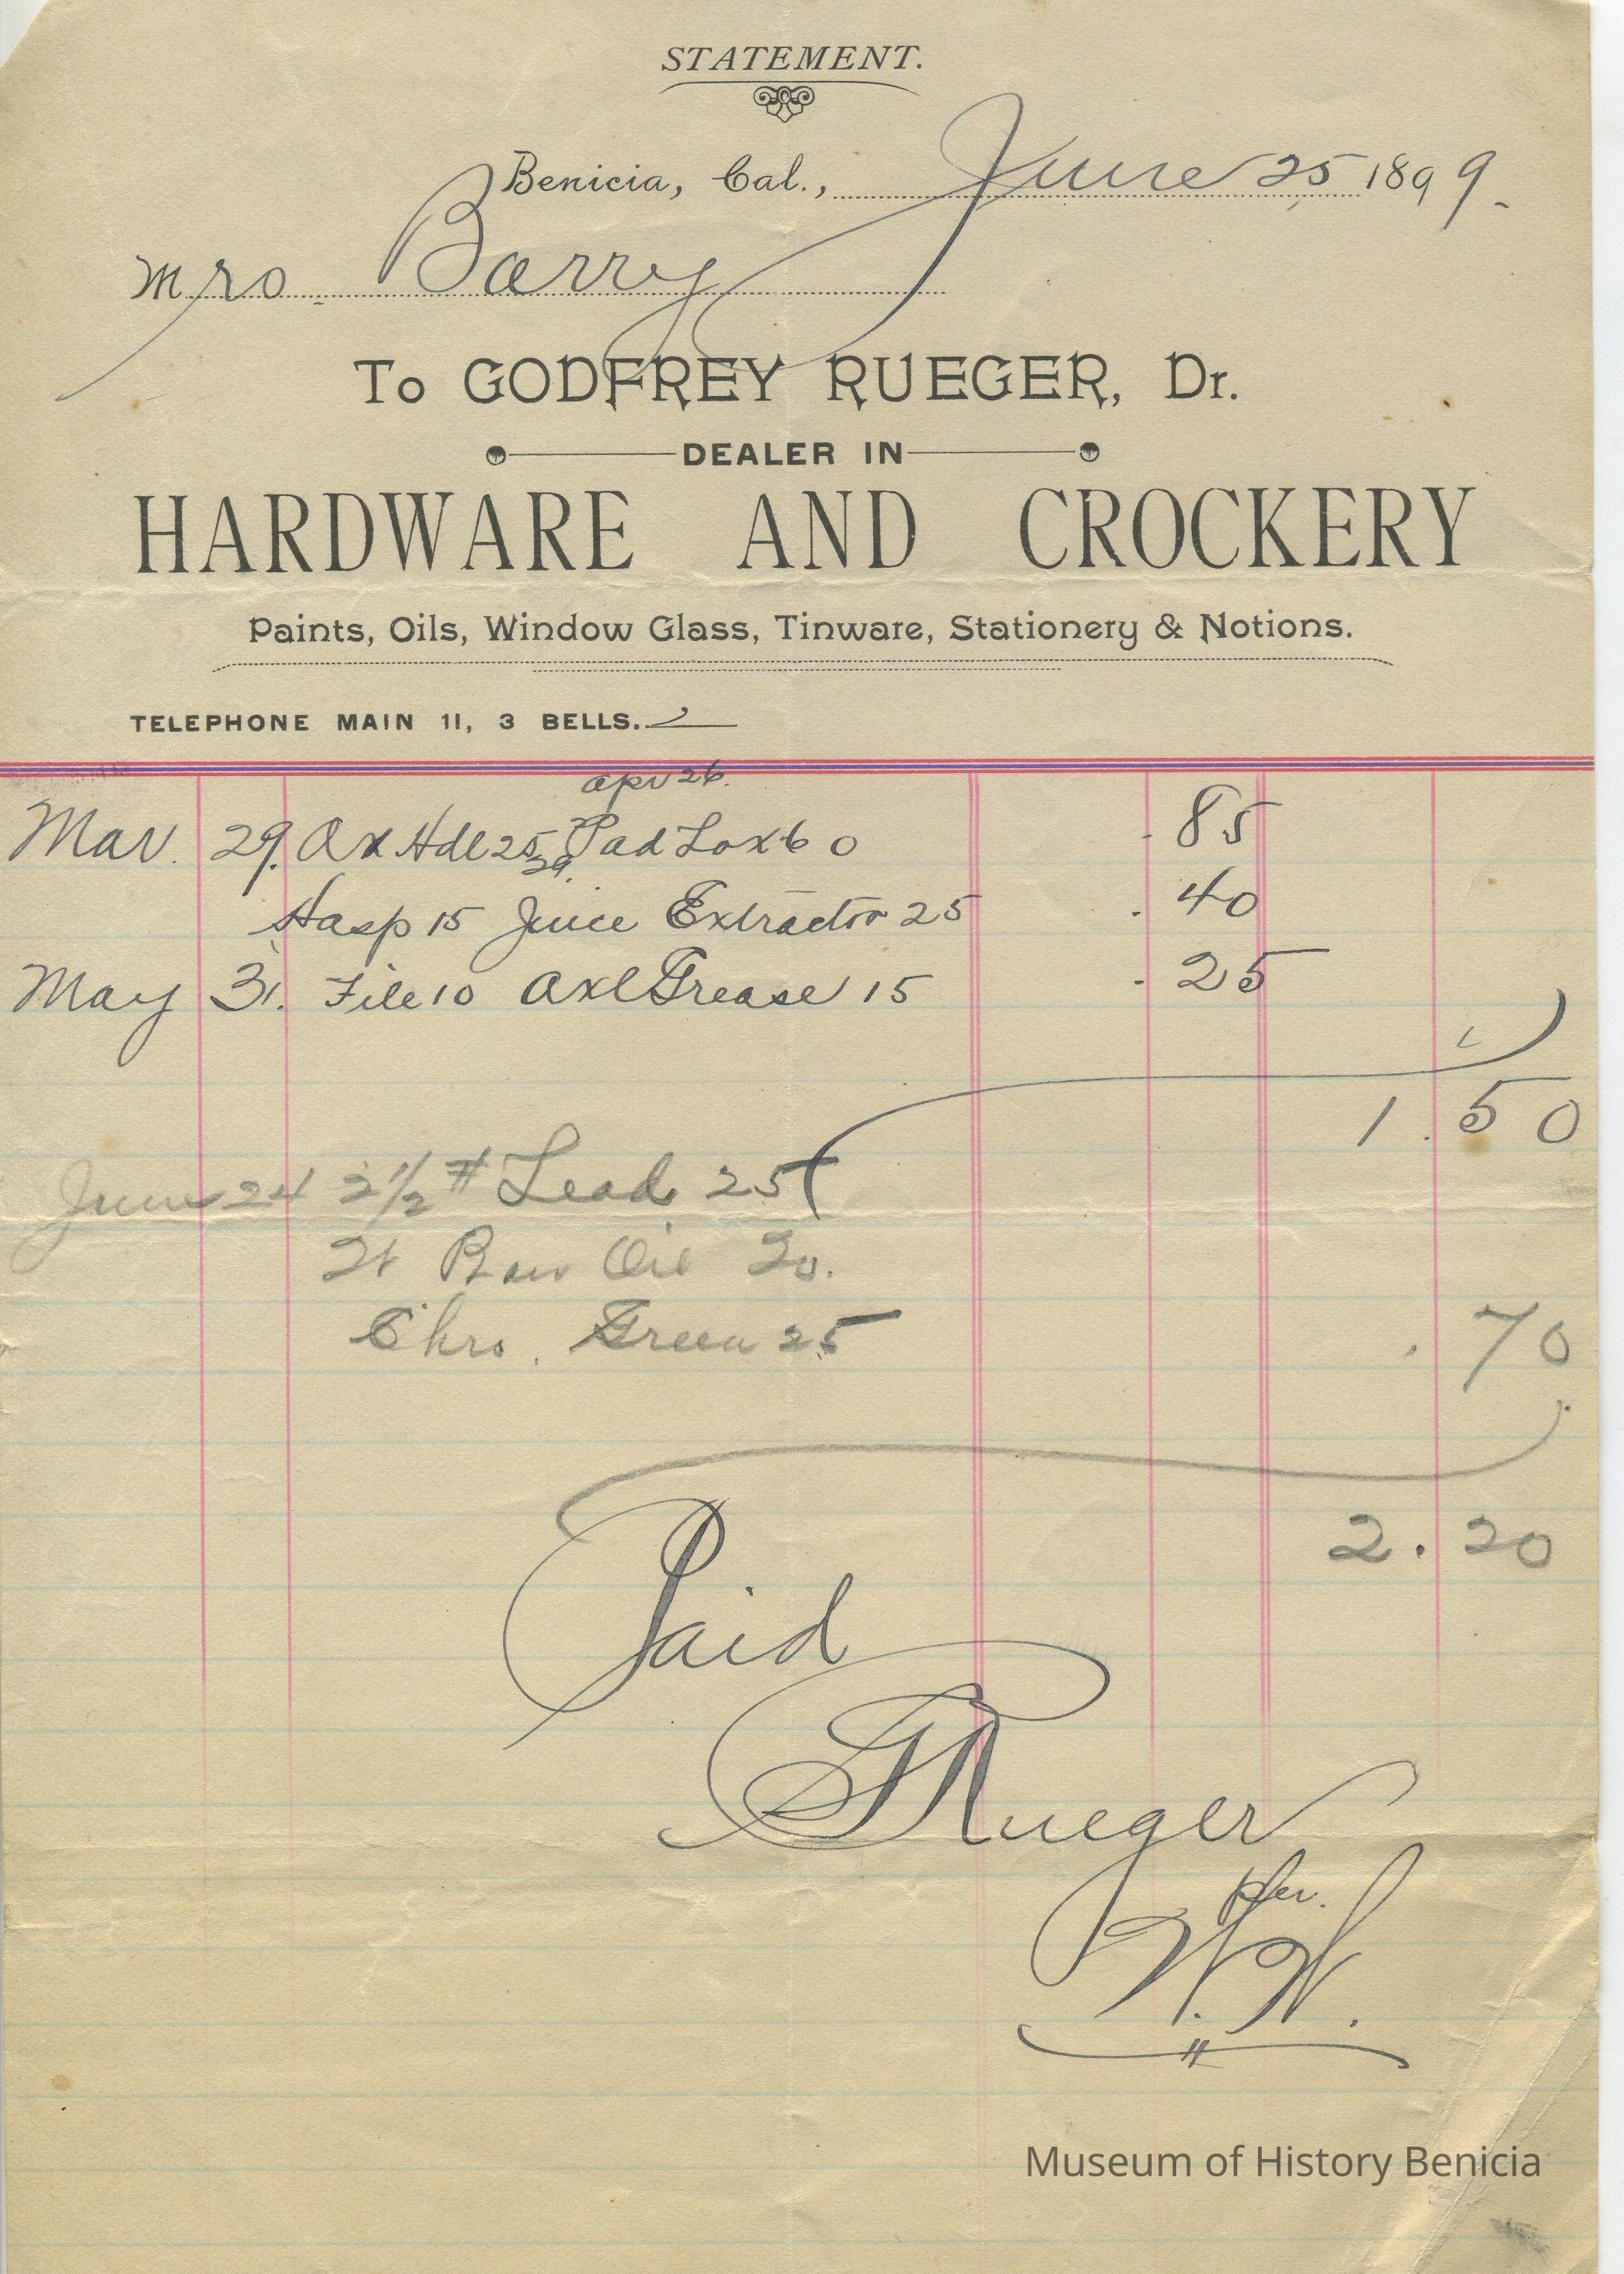 STATEMENT.
Benicia, Cal., June 25 1899.
Mrs. Barry
To GODFREY RUEGER, Dr.
DEALER IN
HARDWARE AND CROCKERY
Paints, Oils, Window Glass, Tinware, Stationery & Notions.
TELEPHONE MAIN 11, 3 BELLS.
apr 26.
Mar. 29. Ax Hdl 25, Pad Lox 60 . 85
29.
Hasp 15 Juice Extractor 25 . 40
May 31. File 10 Axl Grease 15 . 25
1.50
June 24 2 1/2 # Lead 25
2# Raw Oil 20.
Chro. Green 25 . 70
2.20
Paid
G Rueger
per.
W. W.
Museum of History Benicia